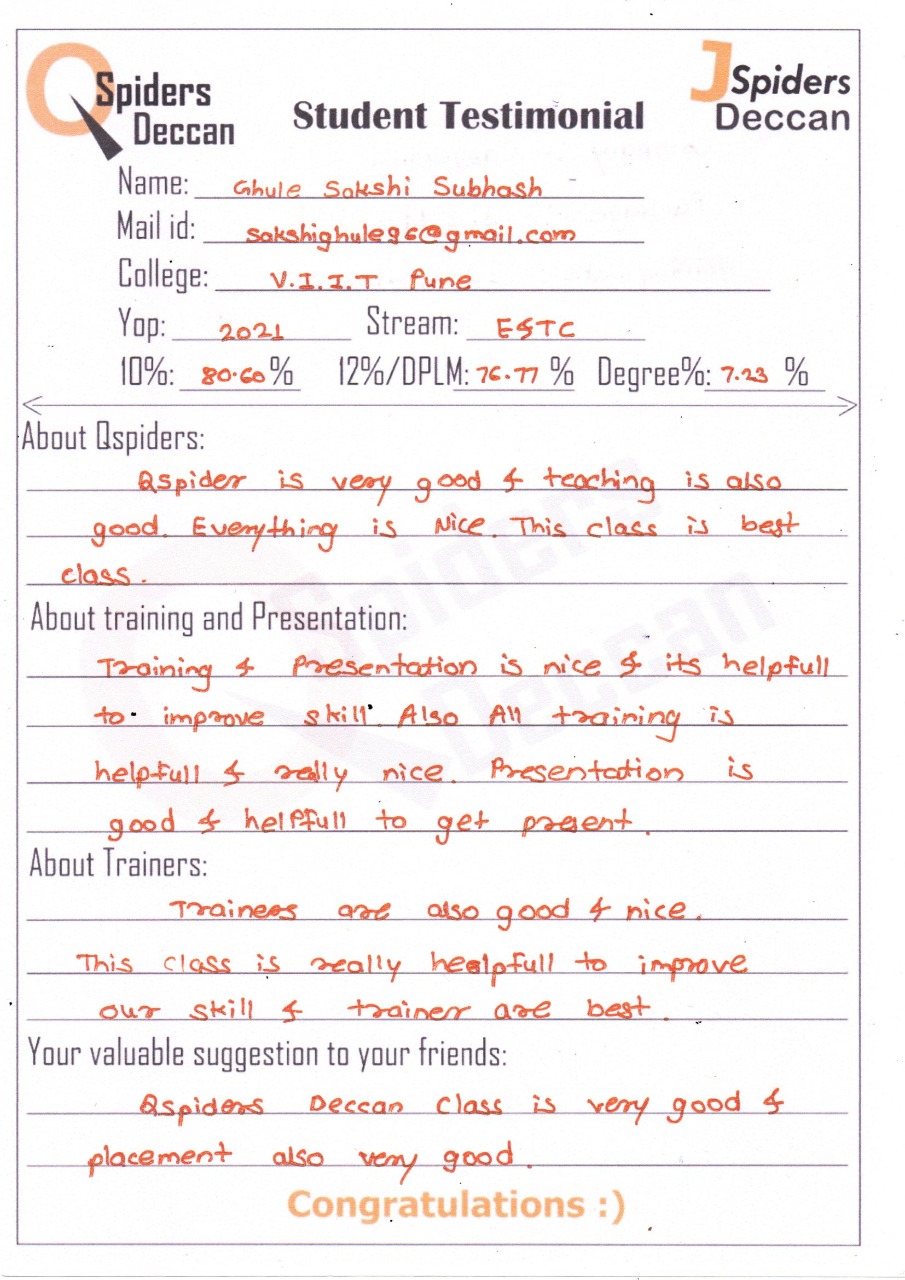 QSpiders Deccan
Student Testimonial
JSpiders Deccan
Name: Ghule Sakshi Subhash
Mail id: sakshighule96@gmail.com
College: V.I.I.T Pune
Yop: 2021 Stream: E&TC
10%: 80.60 % 12%/DPLM: 76.77 % Degree%: 7.23 %
About Qspiders:
Qspider is very good & teaching is also
good. Everything is Nice. This class is best
class.
About training and Presentation:
Training & Presentation is nice & its helpfull
to improve skill. Also All training is
helpfull & really nice. Presentation is
good & helpfull to get present.
About Trainers:
Trainees are also good & nice.
This class is really healpfull to improve
our skill & trainer are best.
Your valuable suggestion to your friends:
Qspiders Deccan Class is very good &
placement also very good.
Congratulations :)